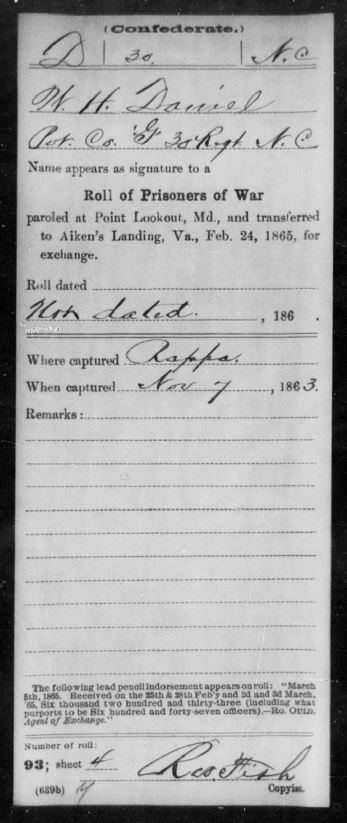 (Confederate.)
D | 30. | N. C
W. H. Daniel
Pvt. Co. "G" 30 Regt. N. C
Name appears as signature to a
Roll of Prisoners of War
paroled at Point Lookout, Md., and transferred
to Aiken's Landing, Va., Feb. 24, 1865, for
exchange.
Roll dated
Not dated. , 186 .
Where captured Rappa.
When captured Nov 7 , 1863.
Remarks:
The following lead pencil indorsement appears on roll: "March
5th, 1865. Received on the 25th & 28th Feb'y and 2d and 3d March,
'65, Six thousand two hundred and thirty-three (including what
purports to be Six hundred and forty-seven officers).—Ro. OULD,
Agent of Exchange."
Number of roll:
93; sheet 4
Fish
(639b) Copyist.